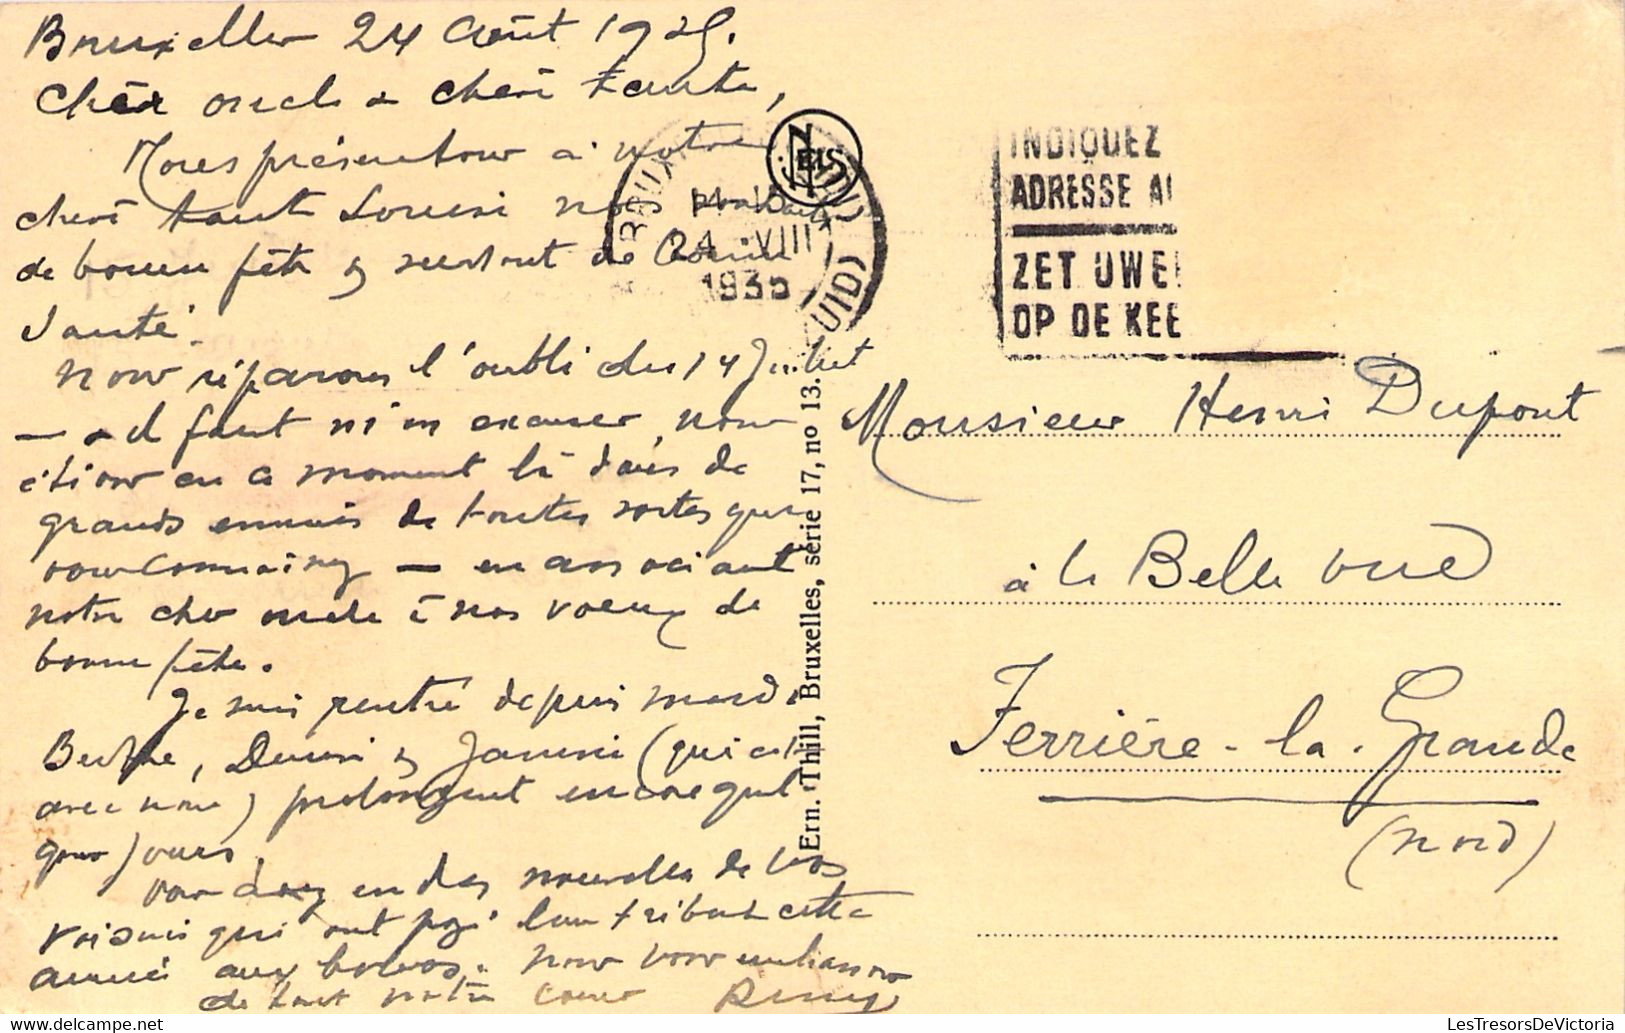 Bruxelles 24 Août 1935.
Cher oncle & chère tante,
Nous présentons à notre
chère tante Louise nos souhaits
de bonne fête & surtout de bonne
santé.
Nous réparons l'oubli du 14 Juillet
— & il faut m'en excuser, nous
étions en ce moment là dans de
grands ennuis de toutes sortes que
vous connaissez — en associant
notre cher oncle à nos voeux de
bonne fête.
Je suis rentré depuis mardi
Berthe, Denise & Janine (qui est
avec nous) prolongent encore quel
ques jours.
Vous en des nouvelles de vos
voisins qui ont payé leur tribut cette
année aux . Nous vous embrassons
de tout notre coeur
NELS
BRUX ZUID)
24 VIII
193
INDIQUEZ
ADRESSE A
ZET UWE
OP DE KEE
Ern. Thill, Bruxelles, série 17, no 13.
Monsieur Henri Dupont
à la Belle vue
Ferrière-la-Grande
(Nord)
LesTresorsDeVictoria
LesTresorsDeVictoria.com